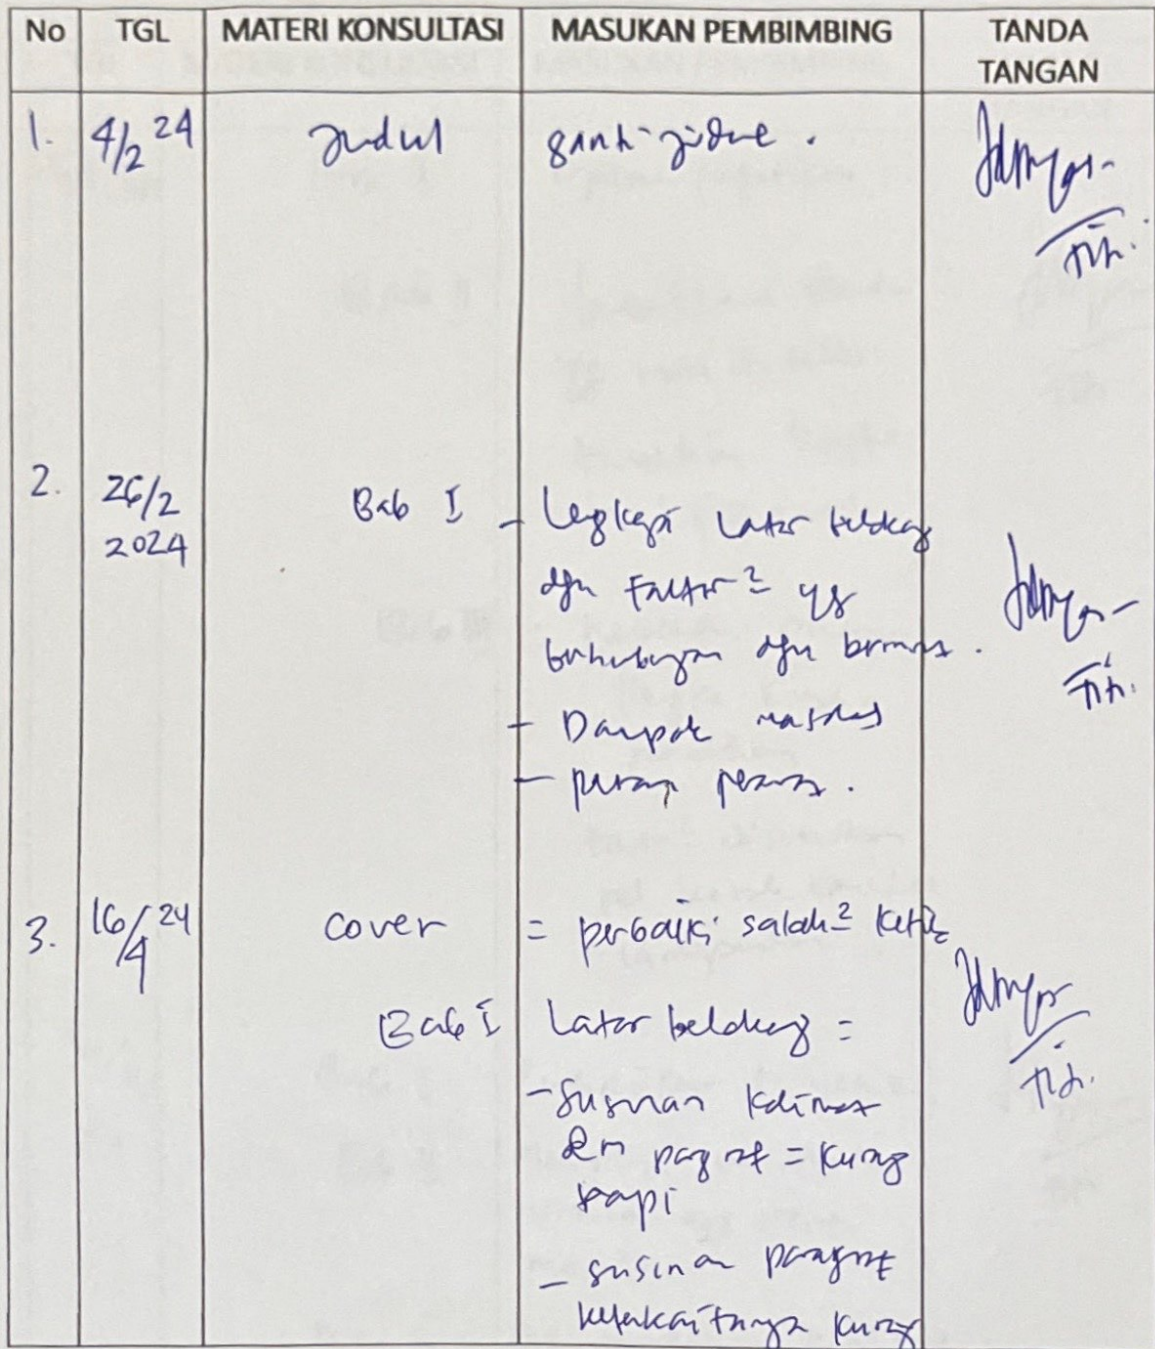 No TGL MATERI KONSULTASI MASUKAN PEMBIMBING TANDA TANGAN
1. 4/2 24 Judul ganti judul.
2. 26/2 2024 Bab I - Lengkapi Latar belakang
dgn Faktor² yg
berhubungan dgn
- Dampak masalah
- peran perawat.
3. 16/4 24 cover = perbaiki salah² ketik
Bab I Latar belakang =
- Susunan kalimat
dan paragraf = kurang
rapi
- susunan paragraf
kurang